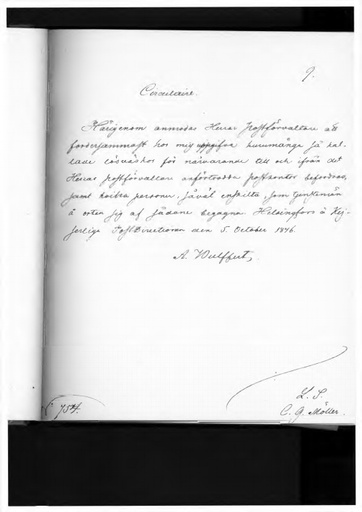 9.
Circulaire.
Härigenom anmodas Herrar Postförvaltare att
fordersammast hos mig uppgifva huru många så kal-
lade lösväskor för närvarande till och ifrån det
Herrar Postförvaltare anförtrodde postkontor befordras,
samt hvilka personer, såväl enskilta, som tjenstemän
å orten sig af sådane begagna. Helsingfors å Kej-
serliga Post Directionen den 5. October 1846.
A. Wulffert,
L. S
C. G. Möller.
754.